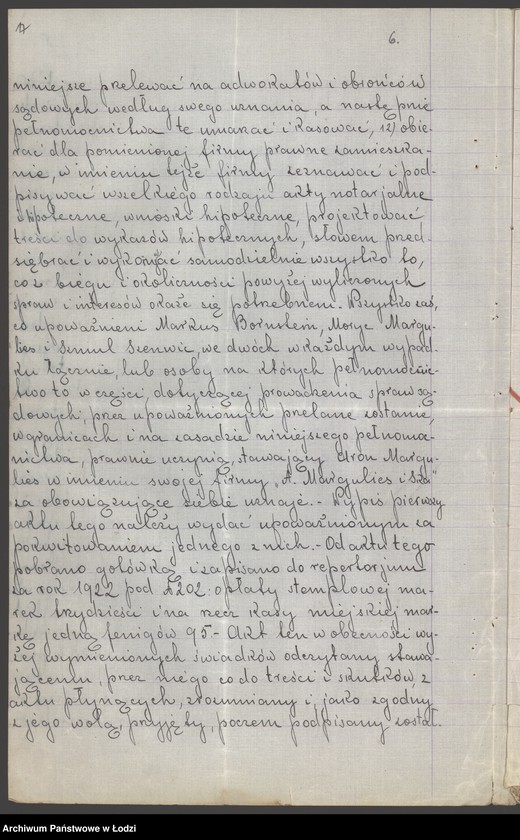 17
6.
niniejsze przelewać na adwokatów i obrońców
sądowych według swego uznania, a następnie
pełnomocnictwa te umarzać i kasować, 12) obie-
rać dla pomienionej firmy prawne zamieszka-
nie, w imieniu tejże firmy zeznawać i pod-
pisywać wszelkiego rodzaju akty notarjalne
i hipoteczne, wnioski hipoteczne, projektować
treści do wykazów hipotecznych, słowem przed-
siębrać i wykonać samodzielnie wszystko to,
co z biegu i okoliczności powyżej wyliczonych
spraw i interesów okaże się potrzebnem. Wszystko zaś,
co upoważnieni Markus Bornstein, Moryc Margu-
lies i Szmul Szenwic, we dwóch w każdym wypad-
ku łącznie, lub osoby na których pełnomocnic-
two to w części, dotyczącej prowadzenia spraw są-
dowych, przez upoważnionych przelane zostanie,
w granicach i na zasadzie niniejszego pełnomo-
nictwa, prawnie uczynią, stawający Aron Margu-
lies w imieniu swojej firmy „A. Margulies i S-ka"
za obowiązujące siebie uznaje. - Wypis pierwszy
aktu tego należy wydać upoważnionym za
pokwitowaniem jednego z nich. - Od aktu tego
pobrano gotówką i zapisano do repertorjum
za rok 1922 pod № 202: opłaty stemplowej ma-
rek trzydzieści i na rzecz kasy miejskiej mar-
kę jedną fenigów 95 - Akt ten w obecności wy-
żej wymienionych świadków odczytany stawa-
jącemu, przez niego co do treści i skutków, z
aktu płynących, zrozumiany i, jako zgodny
z jego wolą, przyjęty, poczem podpisany został.
Archiwum Państwowe w Łodzi